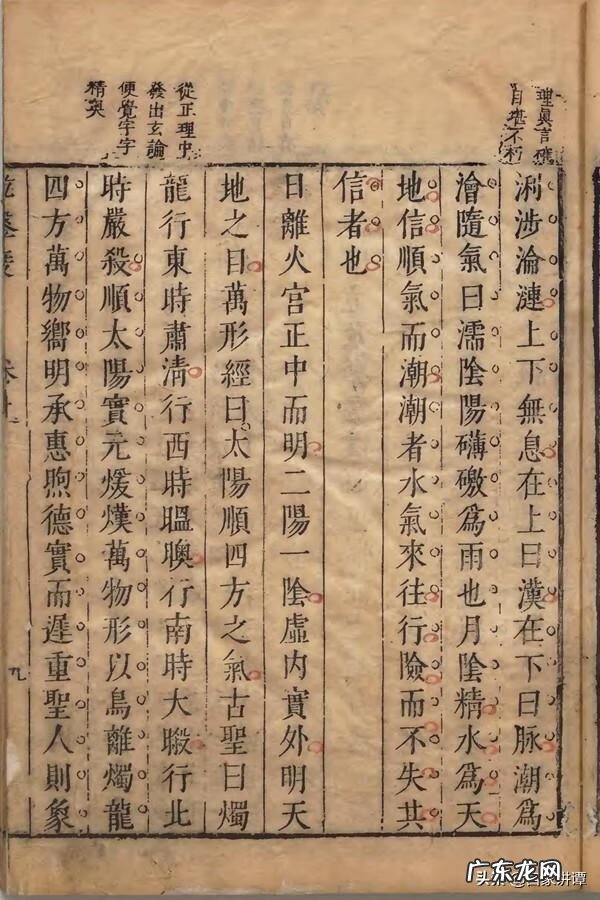 理眞言
自堪不朽
涉淪漣上下無息在上曰漢在下曰脉潮爲
澮隨氣曰濡陰陽礴礉爲雨也月陰精水爲天
地信順氣而潮潮者水氣來往行險而不失其
信者也
日離火宮正中而明二陽一陰虛內實外明天
地之目萬形經曰太陽順四方之氣古聖曰燭
龍行東時肅清行西時䀄䁱行南時大㬊行北
時嚴殺順太陽實元煖熯萬物形以鳥離燭龍
四方萬物嚮明承惠煦德實而遲重聖人則象
從正理中
發出玄論
便覺字字
精奧
九
广东龙网
頭条 @国家讲谭